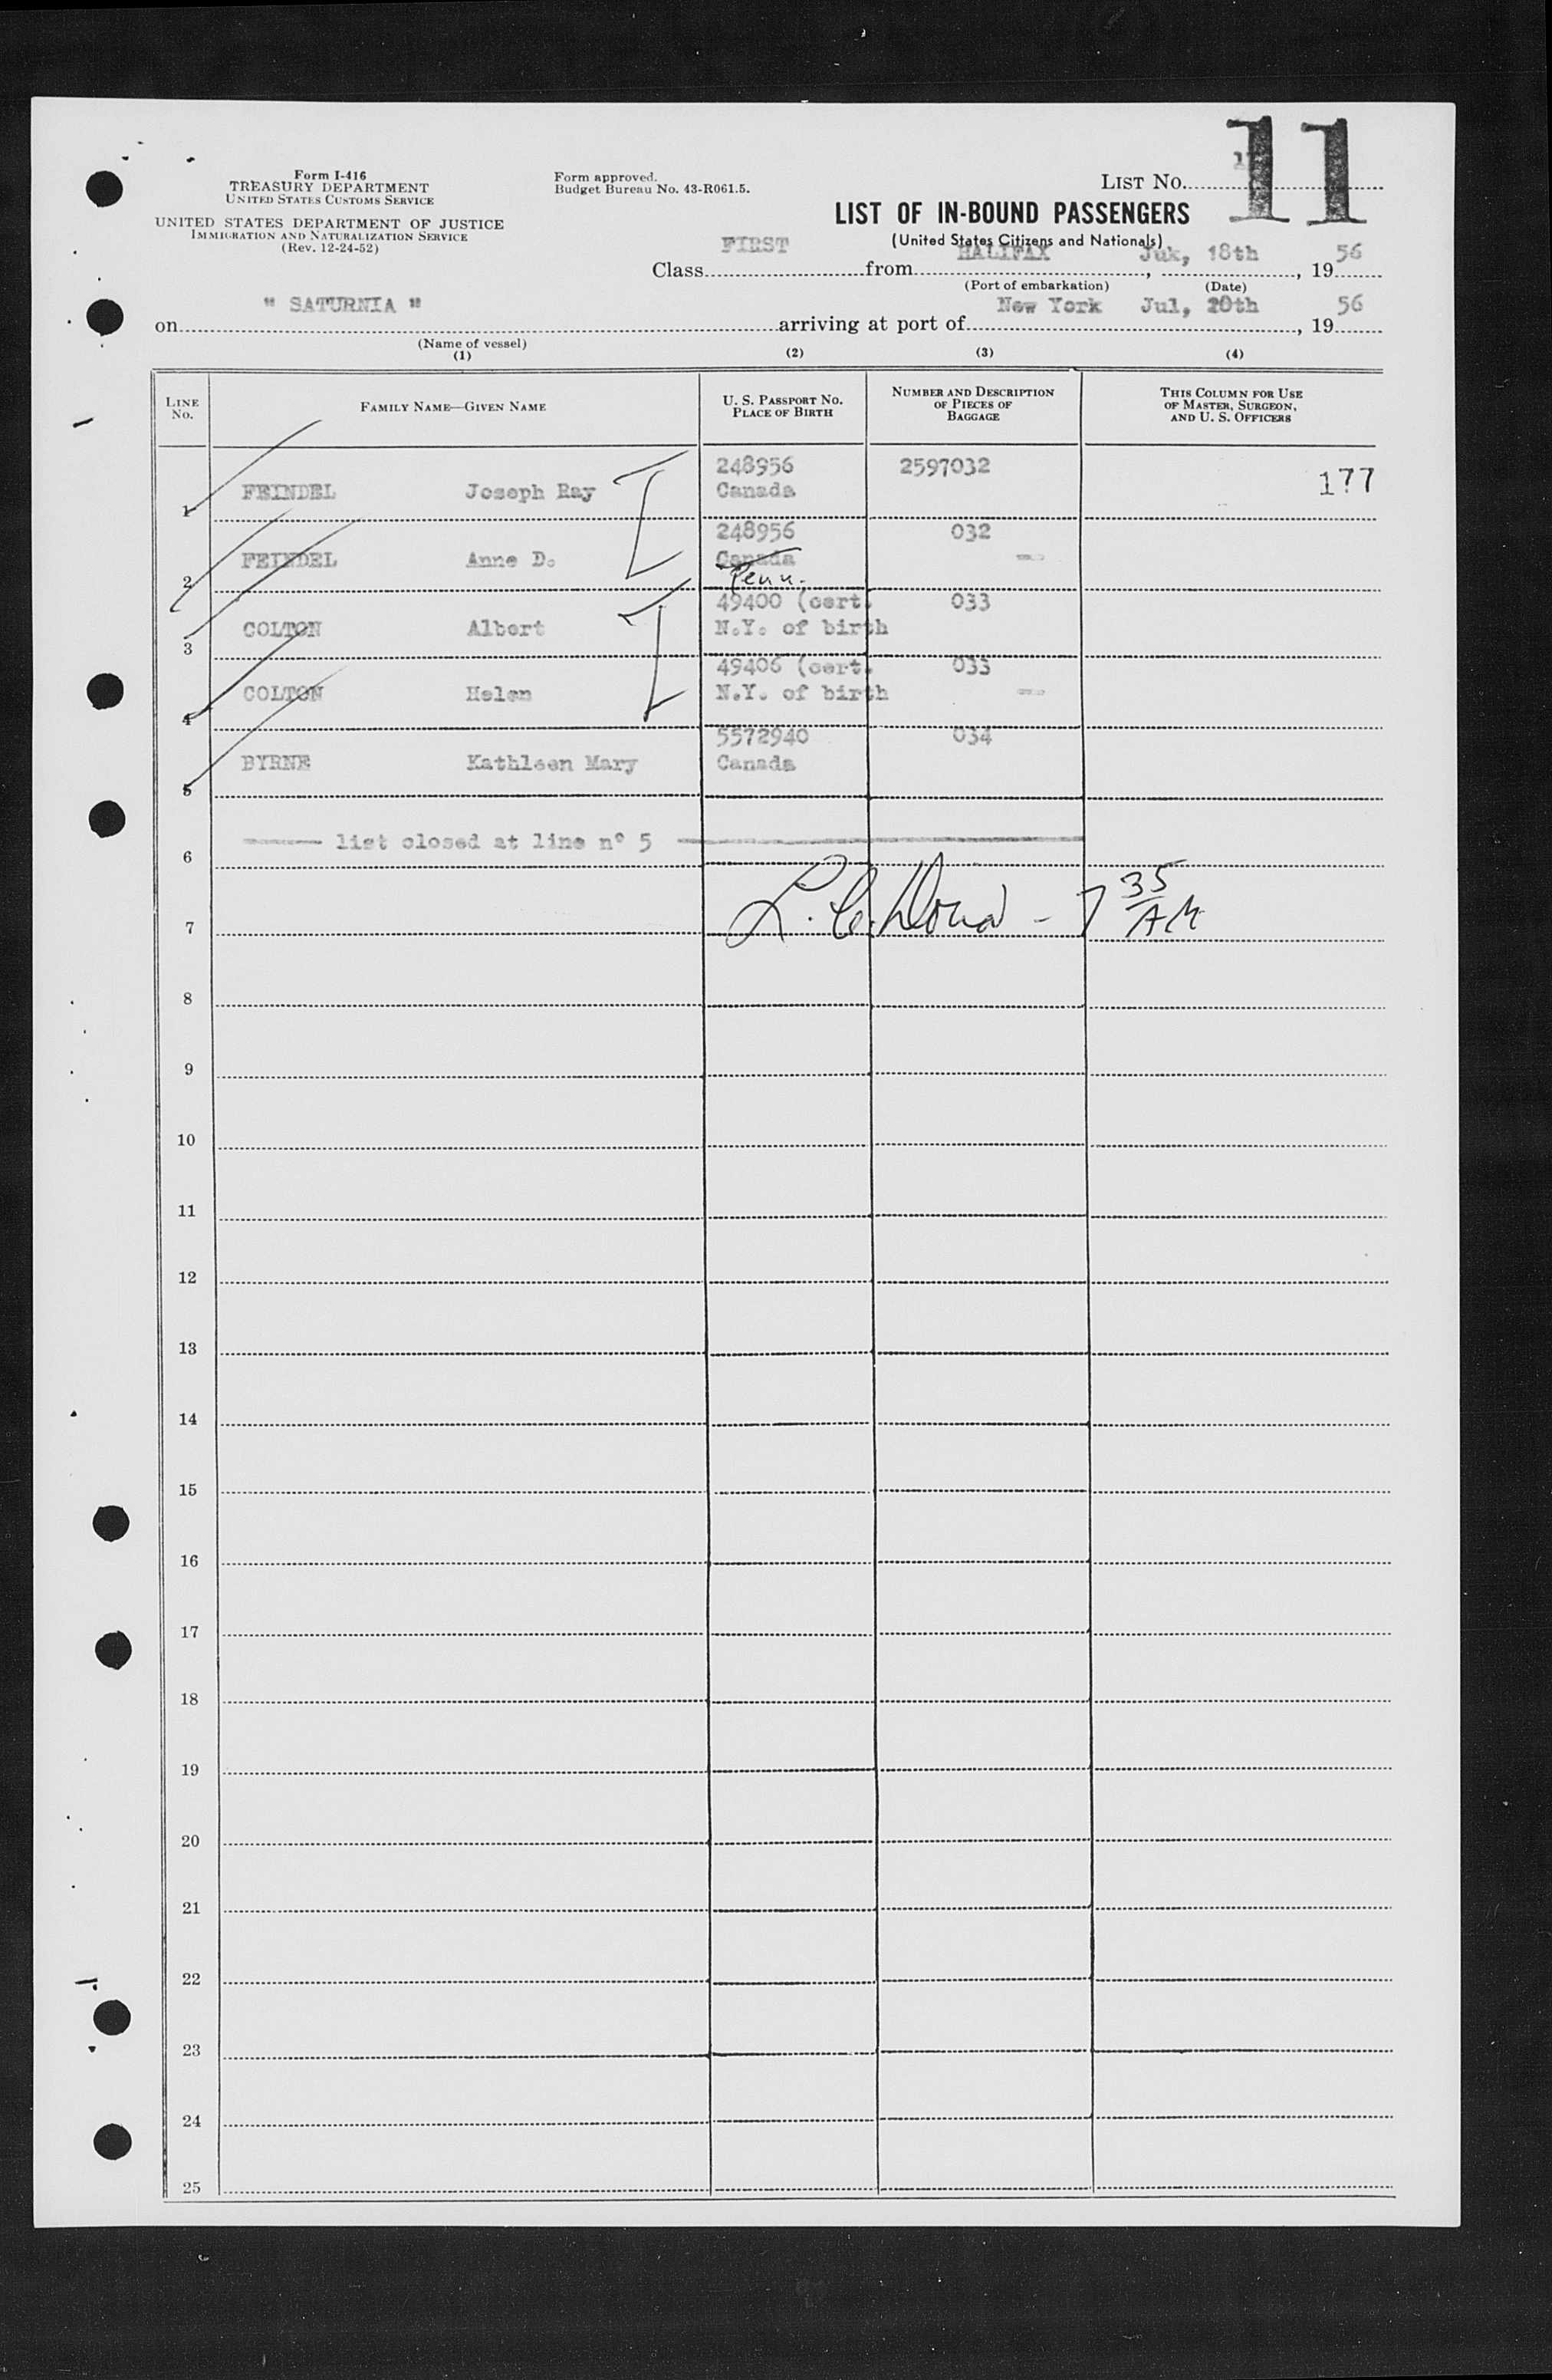 11
Form I-416
TREASURY DEPARTMENT
UNITED STATES CUSTOMS SERVICE
UNITED STATES DEPARTMENT OF JUSTICE
IMMIGRATION AND NATURALIZATION SERVICE
(Rev. 12-24-52)
Form approved.
Budget Bureau No. 43-R061.5.
LIST NO.
LIST OF IN-BOUND PASSENGERS
(United States Citizens and Nationals)
Class FIRST from HALIFAX, Juk, 18th, 19 56
(Port of embarkation) (Date)
on " SATURNIA " arriving at port of New York Jul, 20th, 19 56
(Name of vessel)
(1) (2) (3) (4)
LINE NO. FAMILY NAME—GIVEN NAME U. S. PASSPORT NO. PLACE OF BIRTH NUMBER AND DESCRIPTION OF PIECES OF BAGGAGE THIS COLUMN FOR USE OF MASTER, SURGEON, AND U. S. OFFICERS
248956 2597032
1 FEINDEL Joseph Ray Canada 177
248956 032
2 FEINDEL Anne D. Canada
Penn.
49400 (cert. 033
3 COLTON Albert N.Y. of birth
49406 (cert. 033
4 COLTON Helen N.Y. of birth
5572940 034
5 BYRNE Kathleen Mary Canada
6 list closed at line nº 5
7 - 7 35 AM
8
9
10
11
12
13
14
15
16
17
18
19
20
21
22
23
24
25